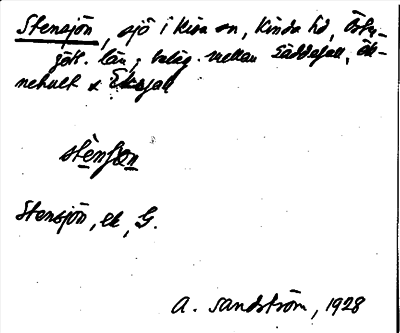 Stensjön, sjö i Kisa sn, Kinda hd, Öster-
göt. län; beläg. mellan Säddefall, Äk-
nehult & Ekefall
stensjön
Stensjön, ek, G.
A. Sandström, 1928